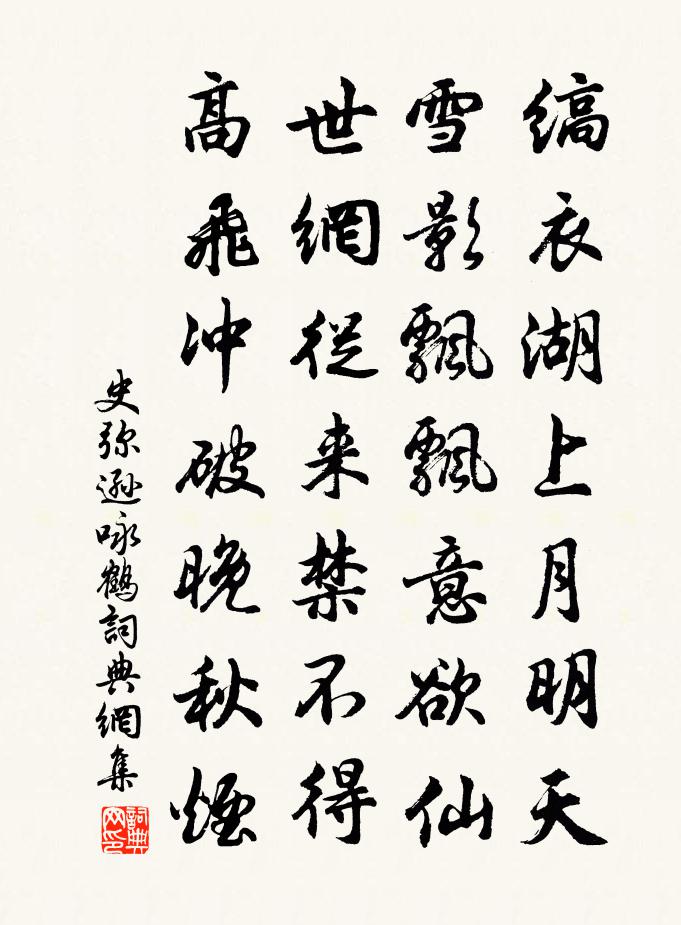 缟衣湖上月明天
雪影飄飄意欲仙
世網從来禁不得
髙飛冲破晚秋煙
史弥遜咏鶴詞典網集
詞典网印